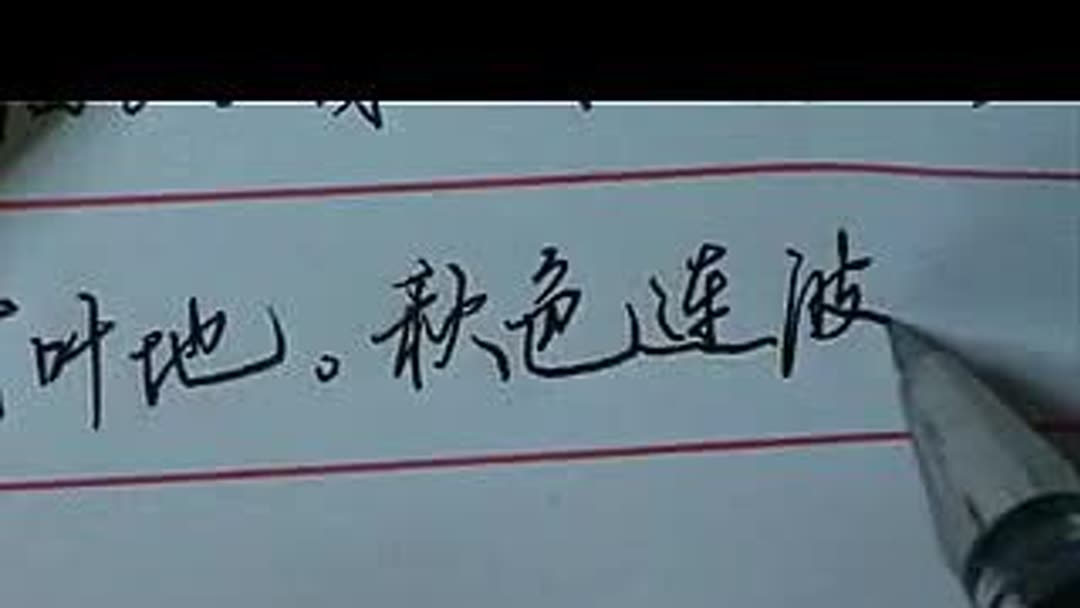 叶地。秋色连波